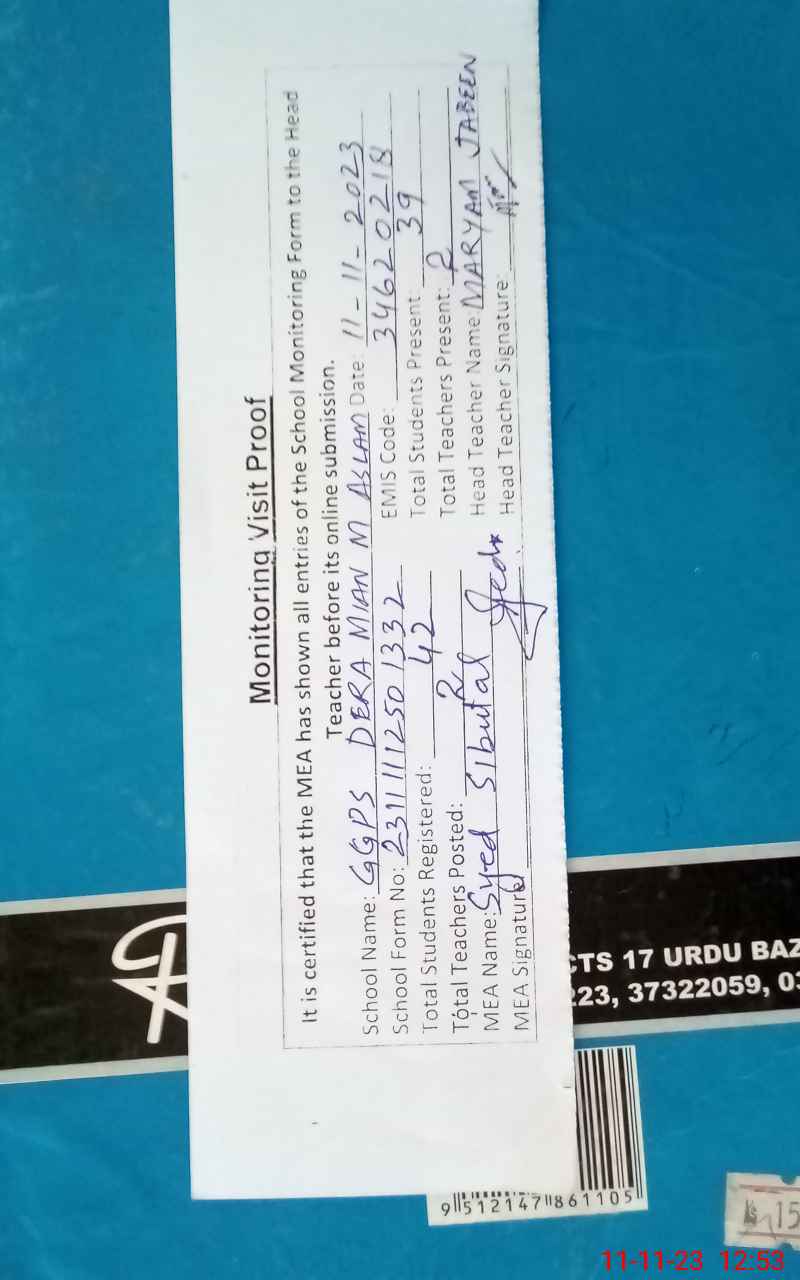 Monitoring Visit Proof
It is certified that the MEA has shown all entries of the School Monitoring Form to the Head
Teacher before its online submission.
School Name: GGPS DERA MIAN M ASLAM Date: 11-11-2023
School Form No: 23111112501332 EMIS Code: 34620218
Total Students Registered: 42 Total Students Present: 39
Total Teachers Posted: 2 Total Teachers Present: 2
MEA Name: Syed Sibutal Head Teacher Name: MARYAM JABEEN
MEA Signature Head Teacher Signature:
CTS 17 URDU BAZ
223, 37322059, 03
9 512147 861105
15
11-11-23 12:53